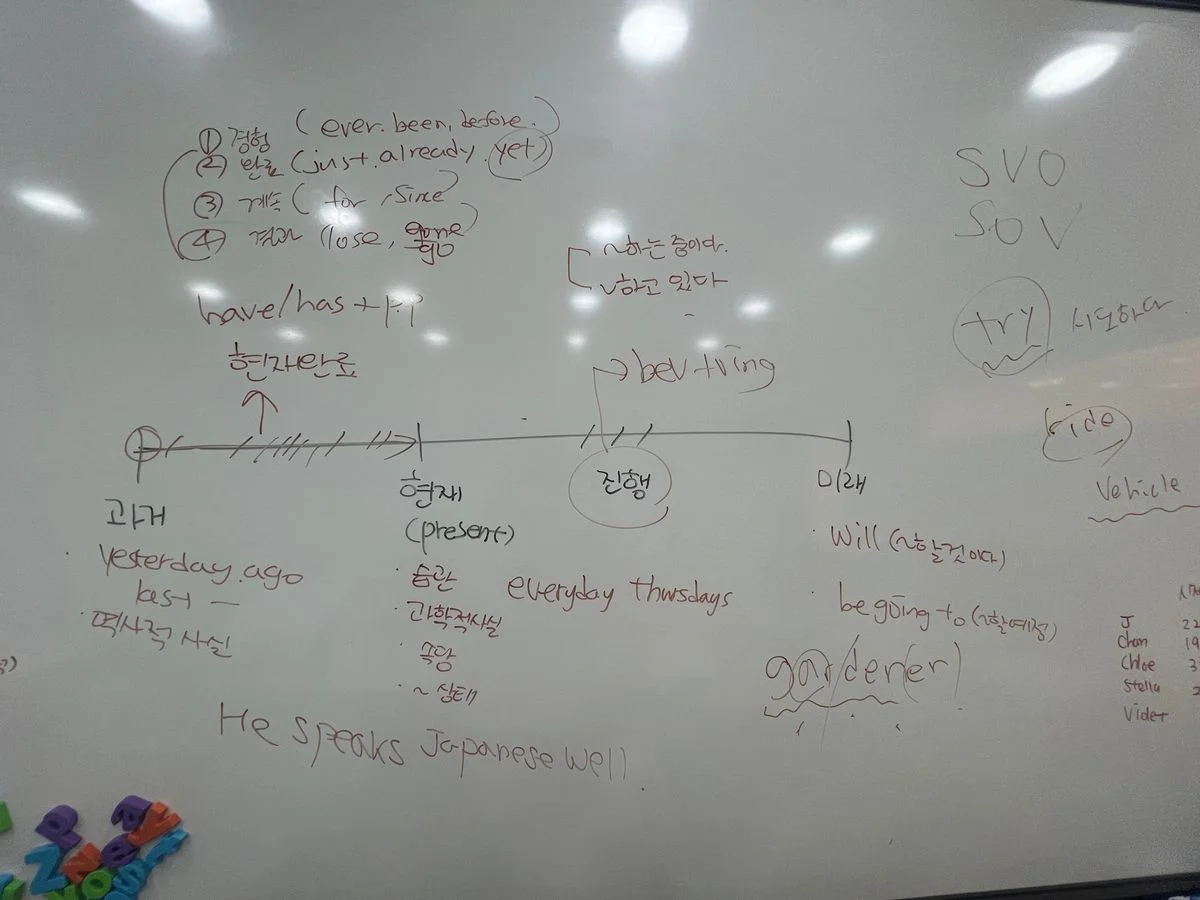 ① 경험 (ever. been, before.)
② 완료 (just. already. yet)
③ 계속 ( for, since
④ 결과 (lose, gone
go
have/has + p.p
현재완료
~하는 중이다.
~하고 있다
bev + ving
SVO
SOV
try 시도하다
ride
Vehicle
과거
현재
(present)
진행
미래
yesterday. ago
last —
· 역사적 사실
· 습관
· 과학적사실
· 속담
· ~ 상태
everyday thursdays
· will (~할것이다)
· be going to (~할예정)
gar/den(er)
He speaks Japanese well.
J 22
Chan 19
Chloe 3
Stella 2